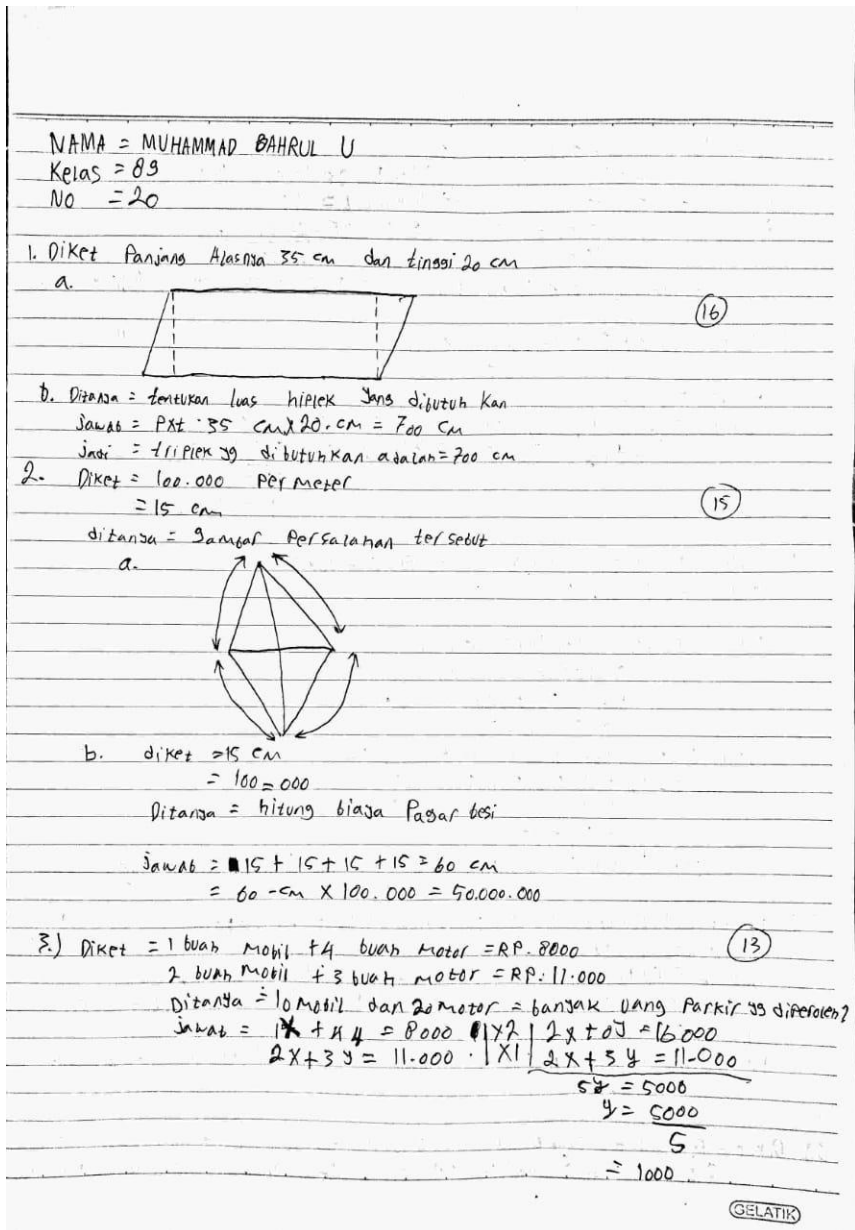 NAMA = MUHAMMAD BAHRUL U
Kelas = 89
No = 20
1. Diket Panjang Alasnya 35 cm dan tinggi 20 cm
a.
16
b. Ditanya = tentukan luas hiplek yang dibutuh kan
Jawab = Pxt = 35 cm x 20. cm = 700 cm
jadi = triplek yg dibutuhkan adalah = 700 cm
2. Diket = 100.000 per meter
= 15 cm
15
ditanya = gambar persalahan ter sebut
a.
b. diket = 15 cm
= 100=000
Ditanya = hitung biaya Pagar besi
jawab = 15 + 15 + 15 + 15 = 60 cm
= 60 - cm X 100.000 = 50.000.000
3.) Diket = 1 buah Mobil + 4 buah Motor = RP. 8000
13
2 buah Mobil + 3 buah motor = RP. 11.000
Ditanya = 10 Mobil dan 20 motor = banyak uang Parkir yg diperoleh?
Jawab = 1X + 4y = 8000 |x2| 2x + 8y = 16000
2x + 3y = 11.000 . |X1| 2x + 3y = 11-000
5y = 5000
y = 5000
5
= 1000
GELATIK